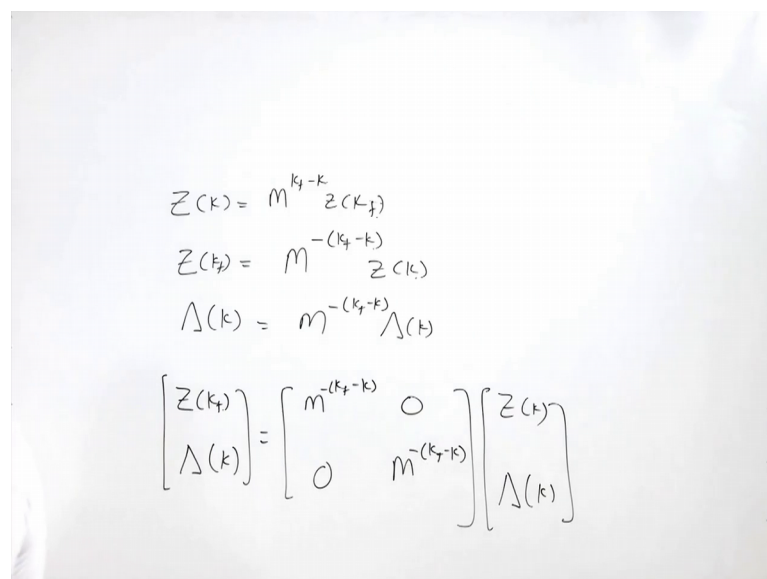 Z(k) = m^{k_f-k} z(k_f)
Z(k_f) = m^{-(k_f-k)} z(k)
Λ(k) = m^{-(k_f-k)} Λ(k)
[Z(k_f) Λ(k)] = [m^{-(k_f-k)} 0 0 m^{-(k_f-k)}] [Z(k) Λ(k)]